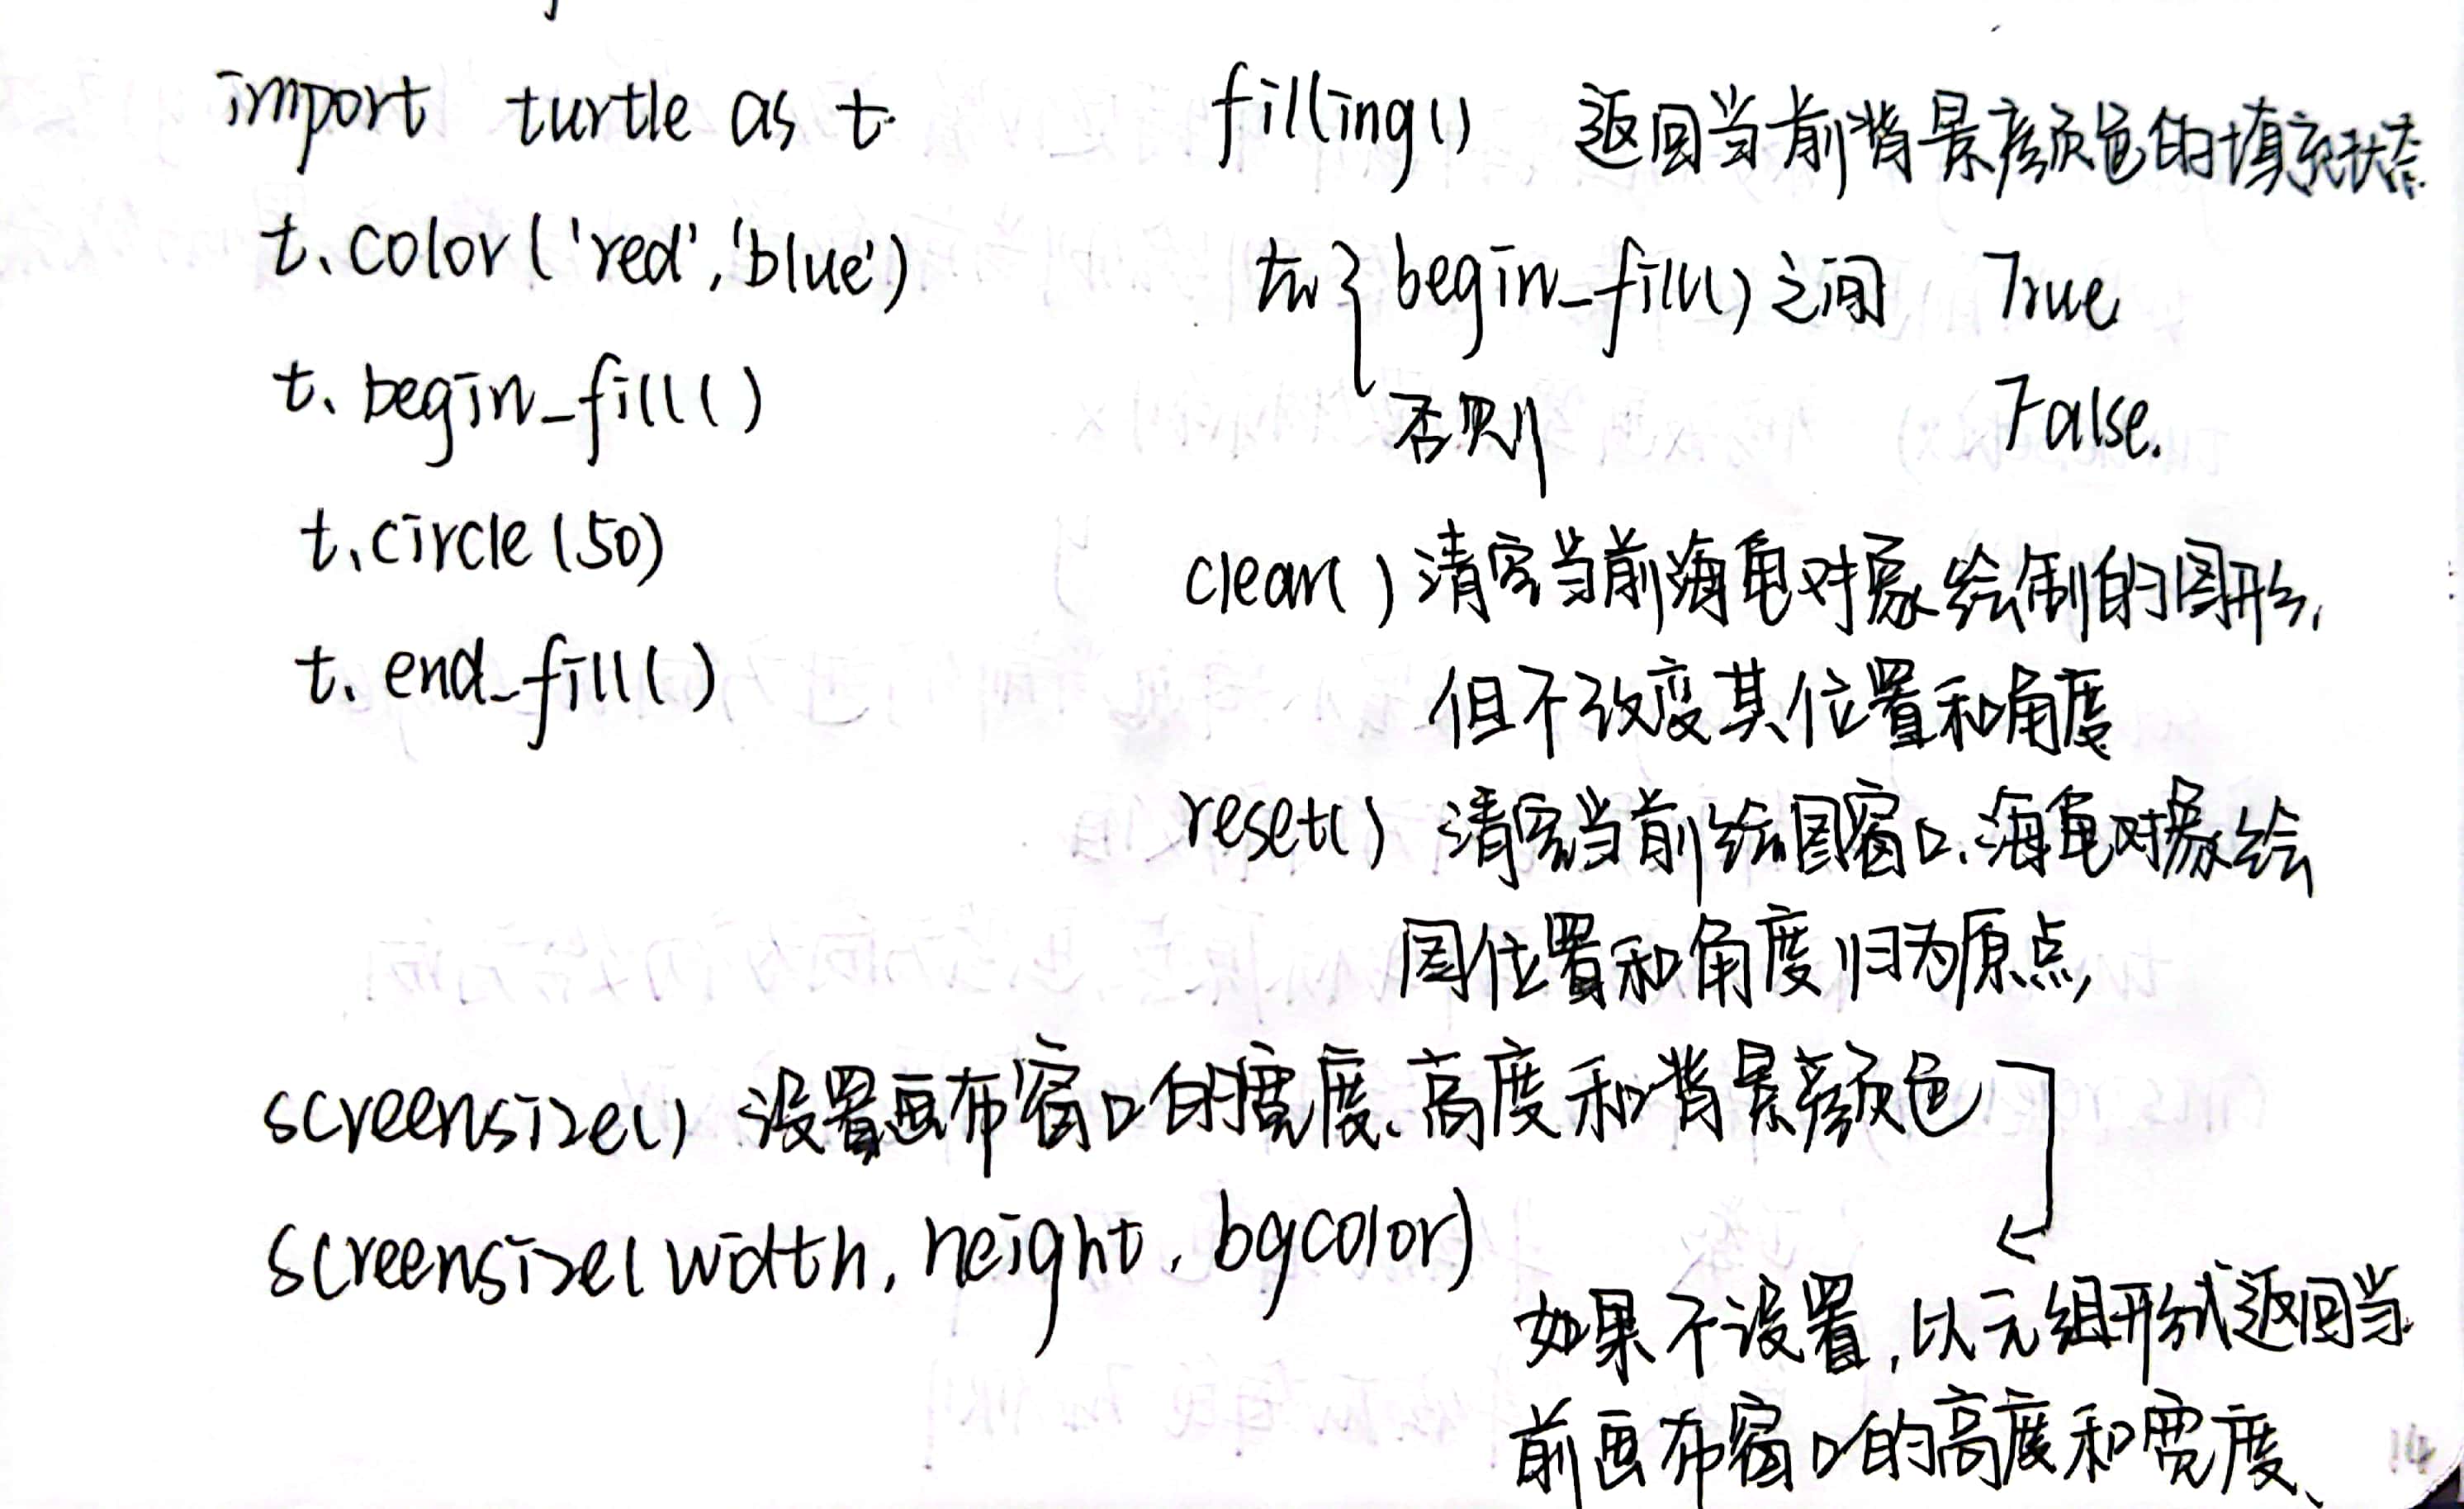 import turtle as t
t.color('red','blue')
t.begin_fill()
t.circle(50)
t.end_fill()
filling() 返回当前背景颜色的填充状态
在 begin_fill()之间 True
否则 False.
clear() 清空当前海龟对象绘制的图形,
但不改变其位置和角度
reset() 清空当前绘图窗口、海龟对象绘
图位置和角度归为原点,
screensize() 设置画布窗口的宽度、高度和背景颜色
screensize(width, height, bgcolor)
如果不设置,以元组形式返回当
前画布窗口的高度和宽度、